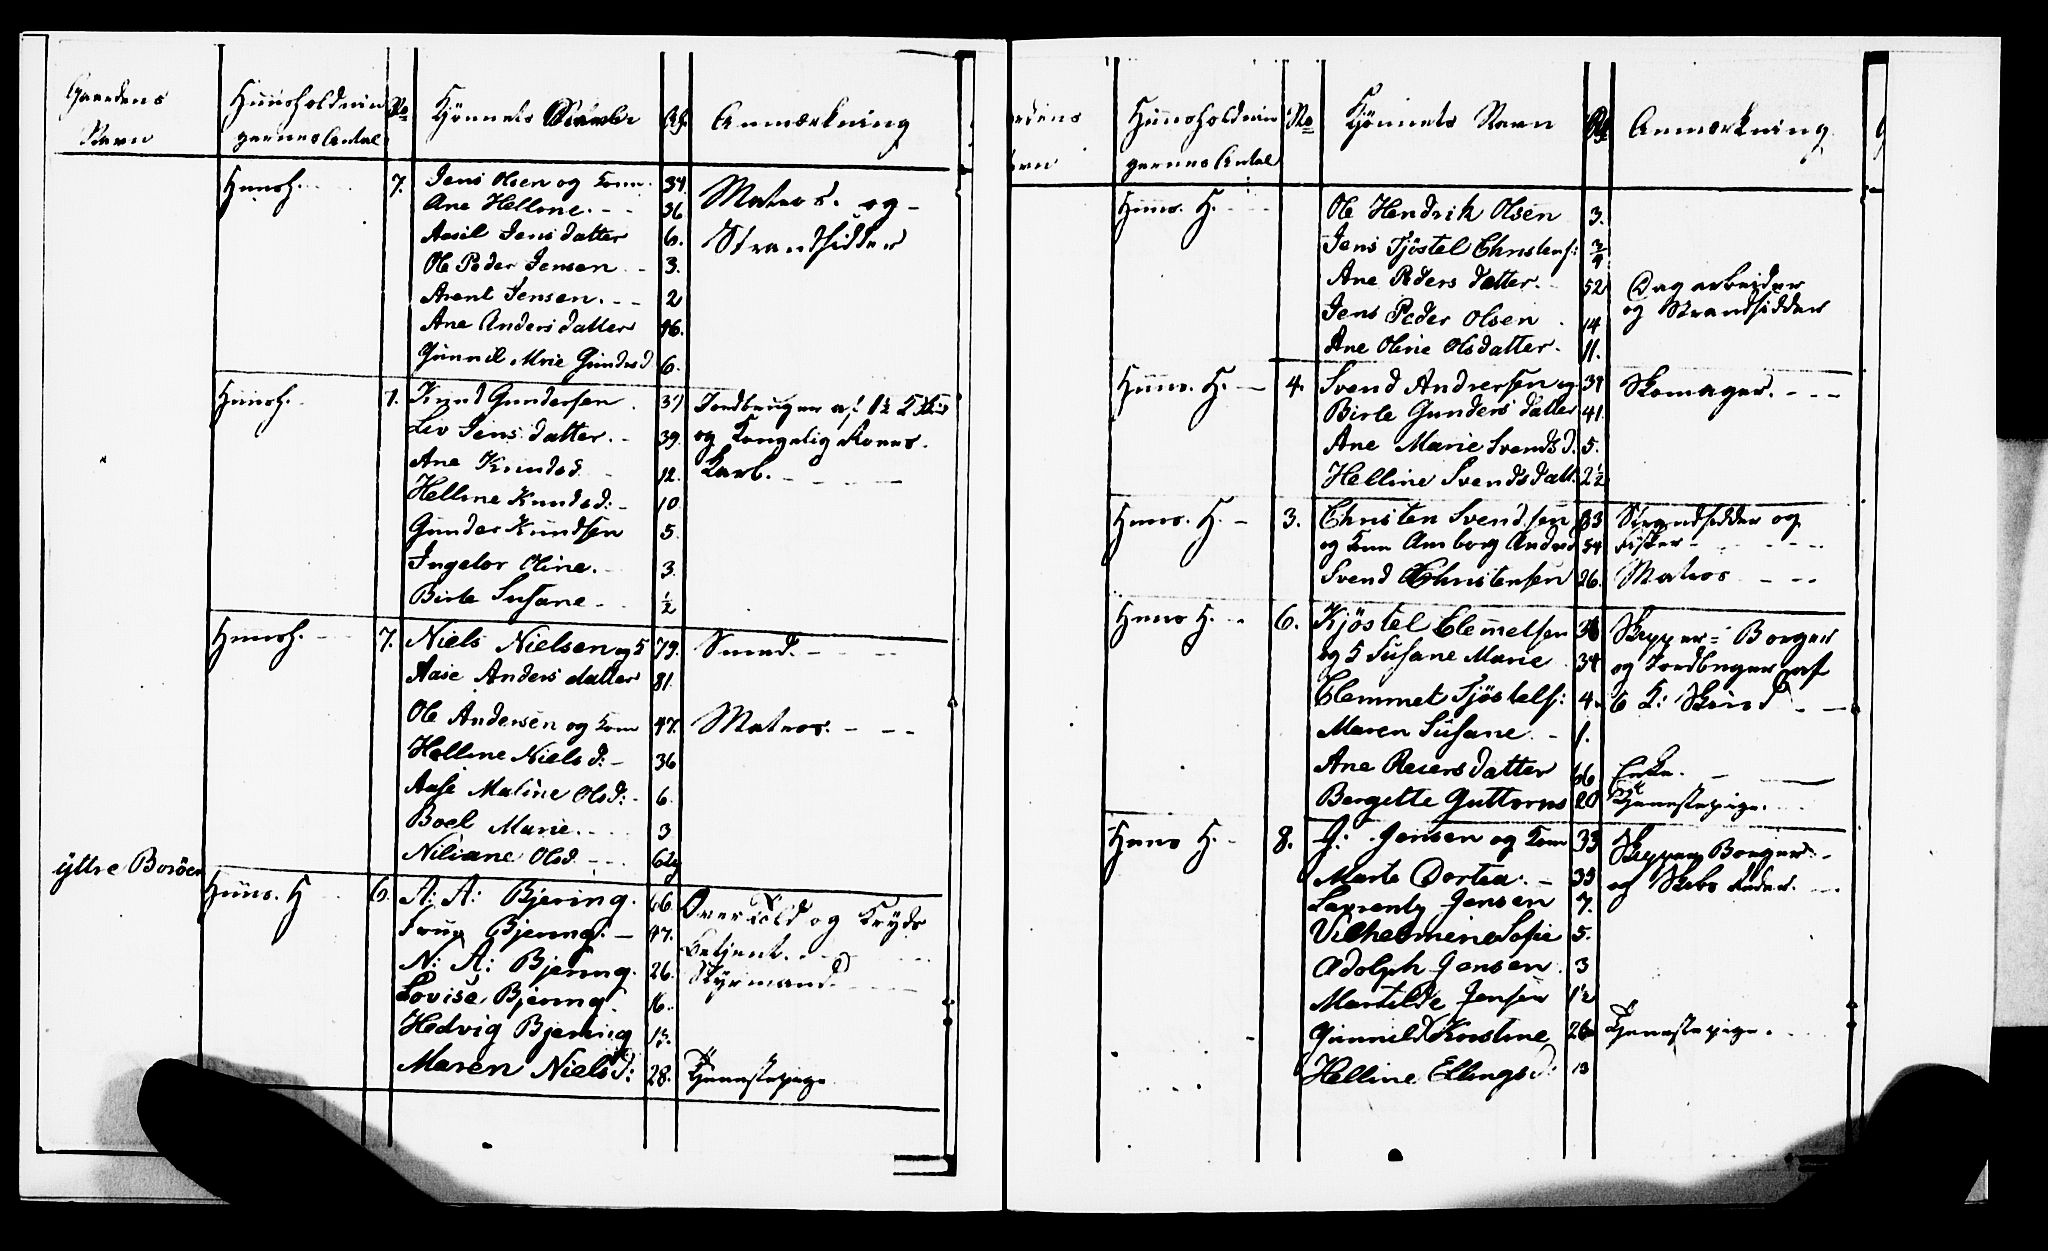 Gaardens Huusholdnin No Kjönnets Al. Anmærkning
Navn gernes Antal
Huush. 7. Jens Olsen og Kone 34. Matros og
Ane Helline. 36 Strandsidder
Aasil Jensdatter 6.
Ole Peder Jensen 3.
Arent Jensen. 2
Ane Andersdatter 46.
Gunnil Marie Gundesd 6.
Huush. 7. Knud Gundersen 37 Jordbruger af
Liv Jensdatter. 39. og Kongelig
Ane Knudsd 12. Karl.
Helline Knudsd: 10
Gunder Knudsen 5.
Ingebor Oline. 3.
Birte Susane ½
Huush. 7. Niels Nielsen og 79. Smed.
Aase Anders datter 81.
Ole Andersen og Kone 47. Matros.
Helline Nielsd: 36
Aase Maline Olsd: 6.
Boel Marie. 3
Niliane Olsd.
yttre Boröen
Huus. H 6. A: A: Bjering. 66. Over Told og Kryds
Frue Bjering. 47. Betjent.
N: A: Bjering. 26. Styrmand
Lovise Bjering 16.
Hedvig Bjering 15.
Maren Nielsd: 28. Tjenestepige
ardens Huusholdnin No Kjönnets Navn Al Anmærkning
avn gernes Antal
Huus. H. Ole Hendrik Olsen 3.
Jens Tjöstel Christens: ¾
Ane Pedersdatter 52 Dagarbeider
Jens Peder Olsen 14 og Strandsidder
Ane Oline Olsdatter. 11.
Huus. H. 4. Svend Andersen og 39 Skomager.
Birte Gundersdatter 41.
Ane Marie Svendsd. 5.
Helline Svendsdatt. 2½
Huus. H. 3. Christen Svendsen 63 Strandsidder og
og Kone Anborg Andersd 54 Fisker
Svend Christensen 26. Matros
Huus H. 6. Kjöstel Clemetsen 36 Skipper Borger
og Susane Marie 34 og Jordbruger af
Clemmet Tjöstels: 4. 6 K: Skind
Maren Susane 1.
Ane Reiersdatter 66 Enke.
Bergette Guttorms 20 Tjenestepige.
Huus H. 8. J: Jensen og Kone 33 Skipper Borger
Marte Dortea. 33 og Skibs Reder.
Laurents Jensen 7.
Vilhelmine Sofie 5.
Adolph Jensen 3
Martilde Jensen 1½
Gunnild Kirstine 26 Tjenestepige.
Helline Ellingsd: 13